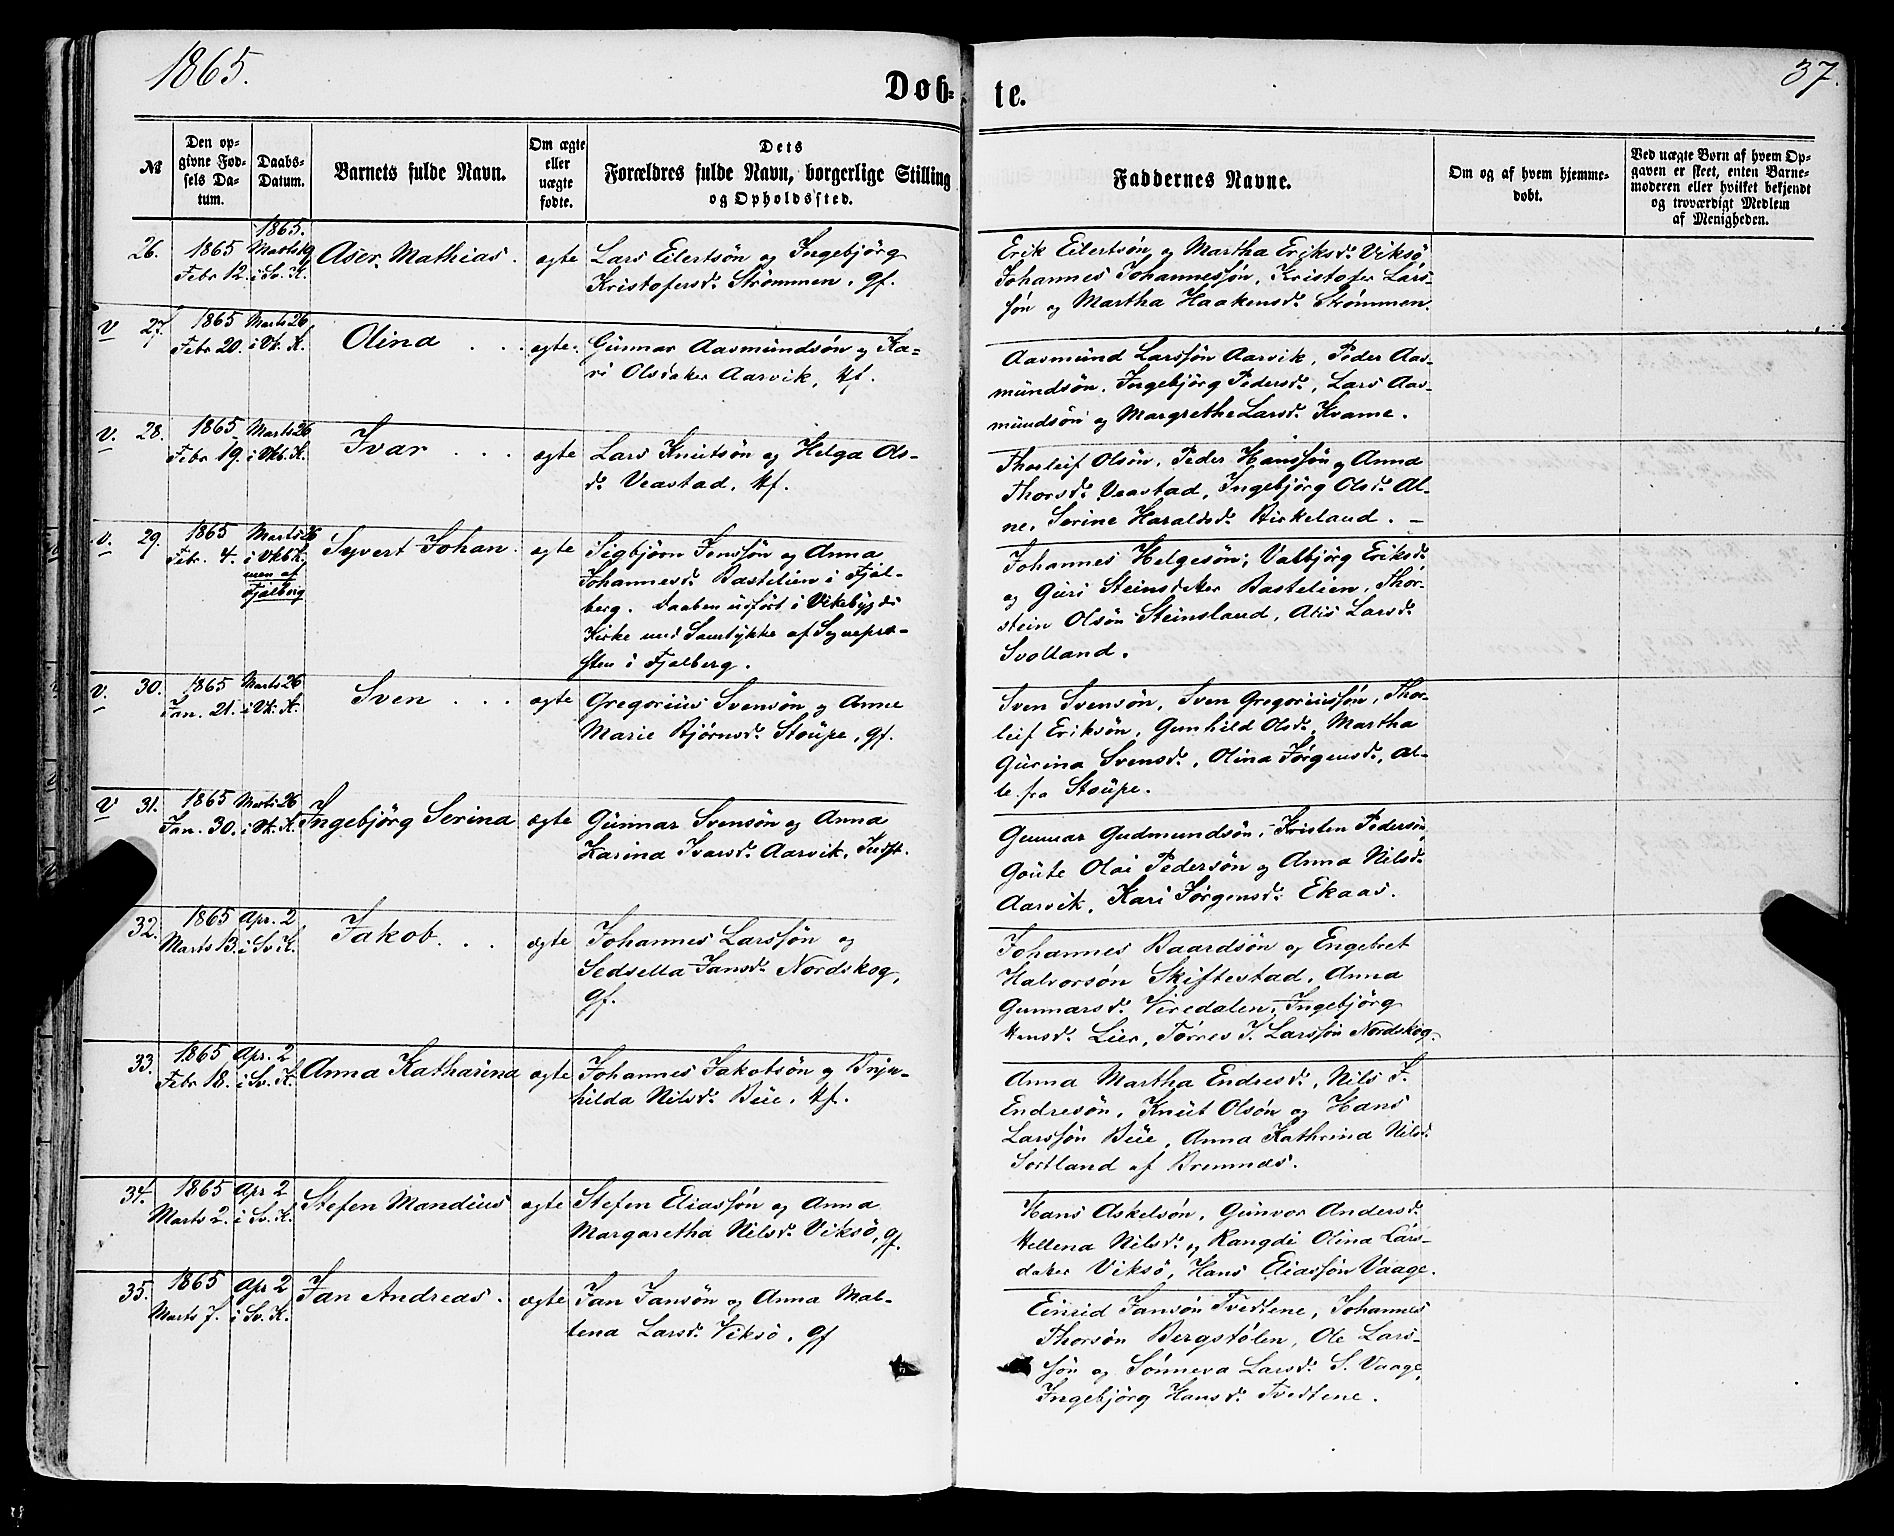 1865.
Døb-
te.
37.
№
Den op-
givne Fød-
sels Da-
tum.
Daabs-
Datum.
Barnets fulde Navn.
Om ægte
eller
uægte
fødte.
Dets
Forældres fulde Navn, borgerlige Stilling
og Opholdssted.
Faddernes Navne.
Om og af hvem hjemme-
døbt.
Ved uægte Børn af hvem Op-
gaven er skeet, enten Barne-
moderen eller hvilket bekjendt
og troværdigt Medlem
af Menigheden.
26.
1865
Febr 12.
1865.
Marts 19
i Sv. K.
Aser Mathias.
ægte
Lars Eilertsön og Ingebjörg
Kristofersd. Strömmen. gf.
Erik Eilertsön og Martha Eriksd. Viksö
Johannes Johannessön, Kristofer Lars-
sön og Martha Haakensd. Strömmen.
V 27.
1865
Febr 20.
Marts 26
i Vk. K.
Olina . . .
ægte.
Gunnar Aasmundsön og Ka-
ri Olsdater Aarvik, kf.
Aasmund Larssön Aarvik, Peder Aas-
mundsön, Ingebjörg Pedersd., Lars Aas-
mundsön og Margrethe Larsd. Kvame.
V. 28.
1865
Febr 19.
Marts 26
i Vkb. K.
Ivar . . .
ægte
Lars Knutsön og Helga Ols-
d. Veastad, kf.
Thorleif Olsön, Peder Hanssön og Anna
Thorsd. Veastad, Ingebjörg Olsd. Al-
ne, Serine Haraldsd. Birkeland. —
V. 29.
1865
Febr. 4.
Marts 26
i Vkb K.
men af
Fjelberg
Syvert Johan.
ægte
Sigbjörn Jenssön og Anna
Johannesd. Bastelien i Fjel-
berg. Daaben udfört i Vikebygds
Kirke med Samtykke af Sognepræ-
sten i Fjelberg.
Johannes Helgesön, Valbjörg Eriksd.
og Guri Steinsdater Bastelien, Thor-
stein Olsön Steinsland, Larsd.
Svolland.
V. 30.
1865
Jan. 21.
Marts 26
i Vk. K.
Sven . . .
ægte
Gregorius Svensön og Anne
Marie Bjørnsd. Stoupe, gf.
Sven Svensön, Sven Gregoriussön, Thor-
leif Eriksön, Gunhild Olsd., Martha
Gurina Svensd., Olina Jörgensd., al-
le fra Stoupe.
V 31.
1865
Jan. 30.
Marts 26
i Vk. K.
Ingebjörg Serina
ægte
Gunnar Svensön og Anna
Karina Ivarsd. Aarvik, Indst.
Gunnar Gudmundsön, Kristen Pedersön,
Goute Olai Pedersön og Anna Nilsd.
Aarvik, Kari Jörgensd. Ekaas.
32.
1865
Marts 13.
Apr. 2
i Sv K.
Jakob. . .
ægte
Johannes Larssön og
Sedsella Jansd. Nordskog,
gf.
Johannes Baardsön og Engebret
Halvorsön Skiftestad, Anna
Gunnarsd. Viredalen, Ingebjörg
Lier, Törres J. Larssön Nordskog.
33.
1865
Febr 18.
Apr. 2
i Sv. K.
Anna Katharina
ægte
Johannes Jakobsön og Brÿn-
hilda Nilsd. Büe, kf.
Anna Martha Endresd., Nils J.
Endresön, Knut Olsön og Hans
Larssön Büe, Anna Kathrina Nilsd.
Sortland af Bremnæs.
34.
1865
Marts 2.
Apr 2
i Sv. K.
Stefen Mandius
ægte
Stefen Eliassön og Anna
Margaretha Nilsd. Viksö, gf.
Hans Askelsön, Gunvor Andersd.
Hellena Nilsd. og Rangdi Olina Lars-
dater Viksö, Hans Eliassön Vaage.
35.
1865
Marts 7.
Apr 2
i Sv. K.
Jan Andreas.
ægte
Jan Jansön og Anna Mal-
lena Larsd. Viksö, gf
Einrid Jansön Tvedtene, Johannes
Thorsön Bergstölen, Ole Lars-
sön og Sönneva Larsd. S. Vaage,
Ingebjörg Hansd. Tvedtene.